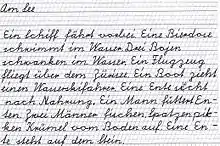 Am See
Ein Schiff fährt vorbei. Eine Bierdose
schwimmt im Wasser. Drei Bojen
schwanken im Wasser. Ein Flugzeug
fliegt über dem Zürisee. Ein Boot zieht
einen Wasserskifahrer. Eine Ente sucht
nach Nahrung. Ein Mann füttert En-
ten. Zwei Männer fischen. Spatzen pik-
ken Krümel vom Boden auf. Eine En-
te steht auf dem Stein.